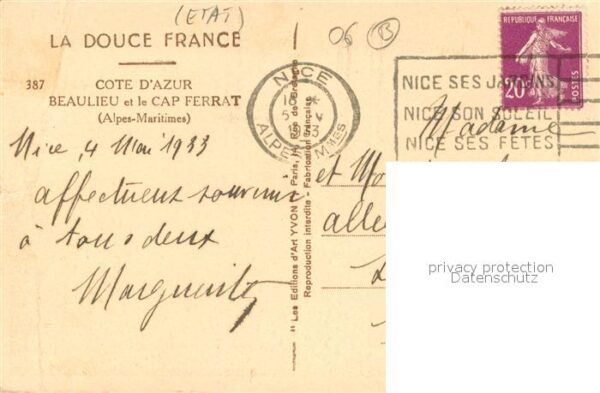 (ETAT)
06 B
LA DOUCE FRANCE
387
COTE D'AZUR
BEAULIEU et le CAP FERRAT
(Alpes-Maritimes)
Nice, 4 Mai 1933
affectueux souvenir
à tous deux
Marguerite
"Les Editions d'Art YVON" Paris, Rue de Bretagne
Reproduction interdite - Fabrication française
NICE
5 V
ALPES MMES
REPUBLIQUE FRANÇAISE
20c
POSTES
NICE SES JARDINS
NICE SON SOLEIL
NICE SES FETES
Madame
et
alle
privacy protection
Datenschutz